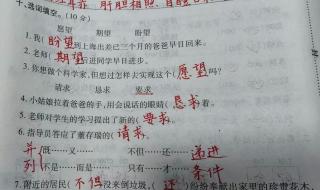 十、选词填空。(10分)
愿望 期望 盼望
1. 我(盼望)到上海出差已三个月的爸爸早日回来。
2. 老师(期望)后进同学早日进步。
3. 你想做个科学家,但想过怎样去实现这个(愿望)吗?
请求 恳求 要求
4. 小姑娘拉着爸爸的手,用会说话的眼睛(恳求)着。
5. 老师对学生的学习提出了新的(要求)。
6. 指导员答应了董存瑞的(请求)。
并 既……又…… 不但……还…… 递进
列 不是……而是…… 只有……才…… 条件
7. 附近的居民(不但)没来倒垃圾,(还)纷纷奉献出家里的珍贵花木